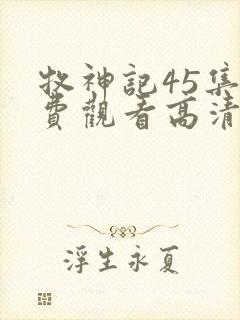 牧神記45集
費觀看高清
浮生永夏